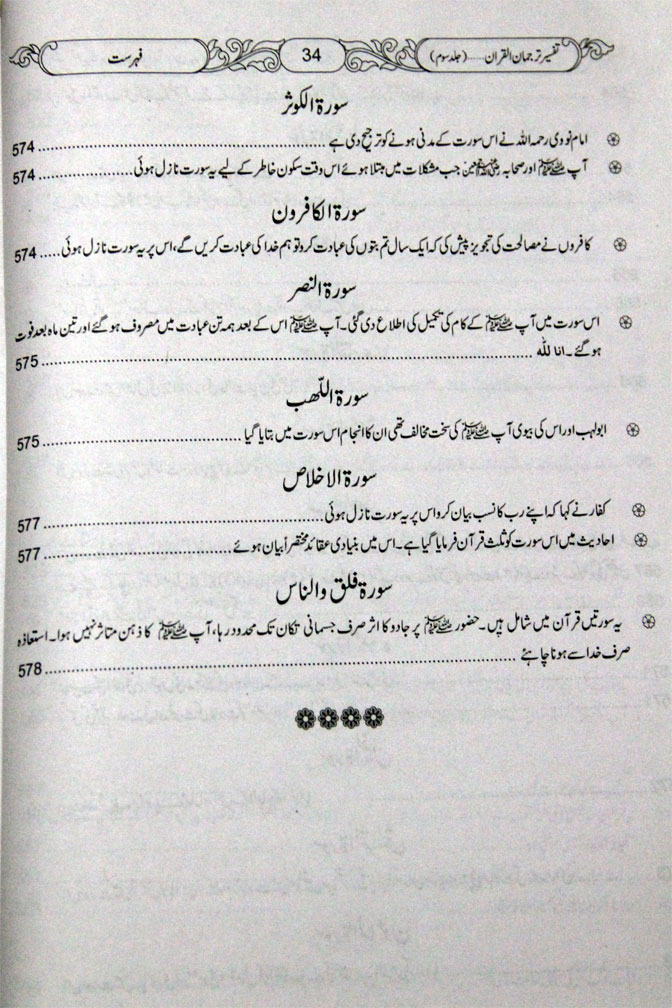 تفسیر ترجمان القرآن ..... (جلد سوم) 34 فہرست
سورۃ الکوثر
امام نووی رحمہ اللہ نے اس سورت کے مدنی ہونے کو ترجیح دی ہے ..... 574
آپ ﷺ اور صحابہ رضی اللہ عنہم جب مشکلات میں مبتلا ہوئے اس وقت سکون خاطر کے لیے یہ سورت نازل ہوئی ..... 574
سورۃ الکافرون
کافروں نے مصالحت کی تجویز پیش کی کہ ایک سال تم بتوں کی عبادت کرو تو ہم خدا کی عبادت کریں گے، اس پر یہ سورت نازل ہوئی ..... 574
سورۃ النصر
اس سورت میں آپ ﷺ کے کام کی تکمیل کی اطلاع دی گئی۔ آپ ﷺ اس کے بعد ہمہ تن عبادت میں مصروف ہو گئے اور تین ماہ بعد فوت
ہو گئے۔ انا للہ ..... 575
سورۃ اللّھب
ابولہب اور اس کی بیوی آپ ﷺ کی سخت مخالف تھی ان کا انجام اس سورت میں بتایا گیا ..... 575
سورۃ الاخلاص
کفار نے کہا کہ اپنے رب کا نسب بیان کرو اس پر یہ سورت نازل ہوئی ..... 577
احادیث میں اس سورت کو ثلث قرآن فرمایا گیا ہے۔ اس میں بنیادی عقائد مختصراً بیان ہوئے ..... 577
سورۃ فلق والناس
یہ سورتیں قرآن میں شامل ہیں۔ حضور ﷺ پر جادو کا اثر صرف جسمانی تکان تک محدود رہا، آپ ﷺ کا ذہن متاثر نہیں ہوا۔ استعاذہ
صرف خدا سے ہونا چاہئے ..... 578